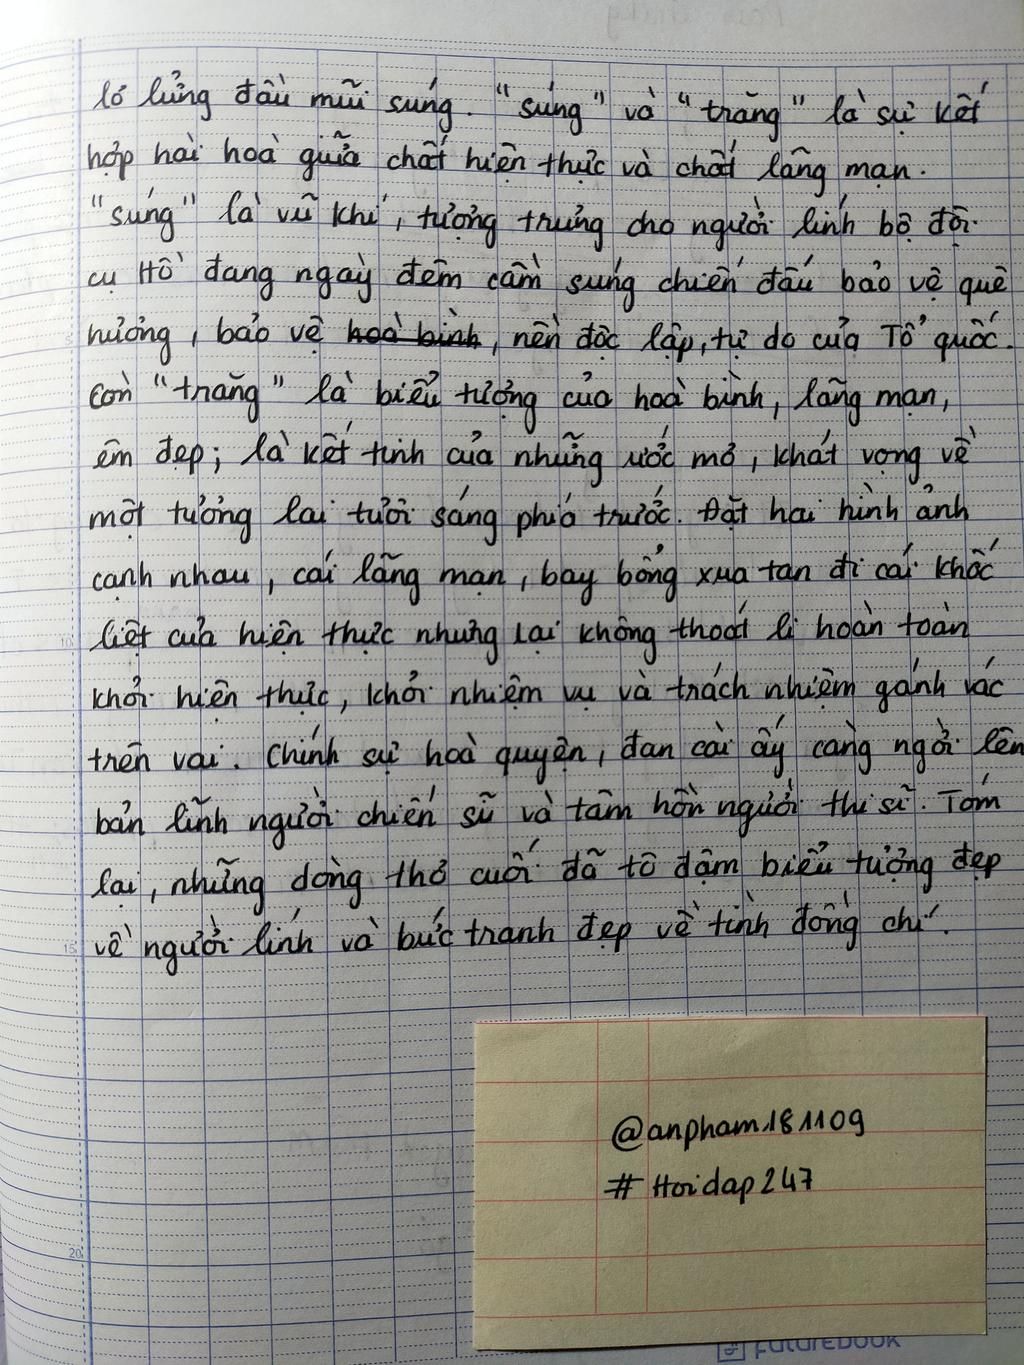 ló lửng đầu mũi súng. "súng" và "trăng" là sự kết
hợp hài hoà giữa chất hiện thực và chất lãng mạn.
"súng" là vũ khí, tượng trưng cho người lính bộ đội
cụ Hồ đang ngày đêm cầm súng chiến đấu bảo vệ quê
hương, bảo vệ hoà bình, nền độc lập, tự do của Tổ quốc.
Còn "trăng" là biểu tượng của hoà bình, lãng mạn,
êm đẹp; là kết tinh của những ước mơ, khát vọng về
một tương lai tươi sáng phía trước. Đặt hai hình ảnh
cạnh nhau, cái lãng mạn, bay bổng xua tan đi cái khốc
liệt của hiện thực nhưng lại không thoát li hoàn toàn
khỏi hiện thực, khỏi nhiệm vụ và trách nhiệm gánh vác
trên vai. Chính sự hoà quyện, đan cài ấy càng ngời lên
bản lĩnh người chiến sĩ và tâm hồn người thi sĩ. Tóm
lại, những dòng thơ cuối đã tô đậm biểu tượng đẹp
về người lính và bức tranh đẹp về tình đồng chí.
@anpham181109
# Hoidap247
5
10
15
20
FUTUREBOOK